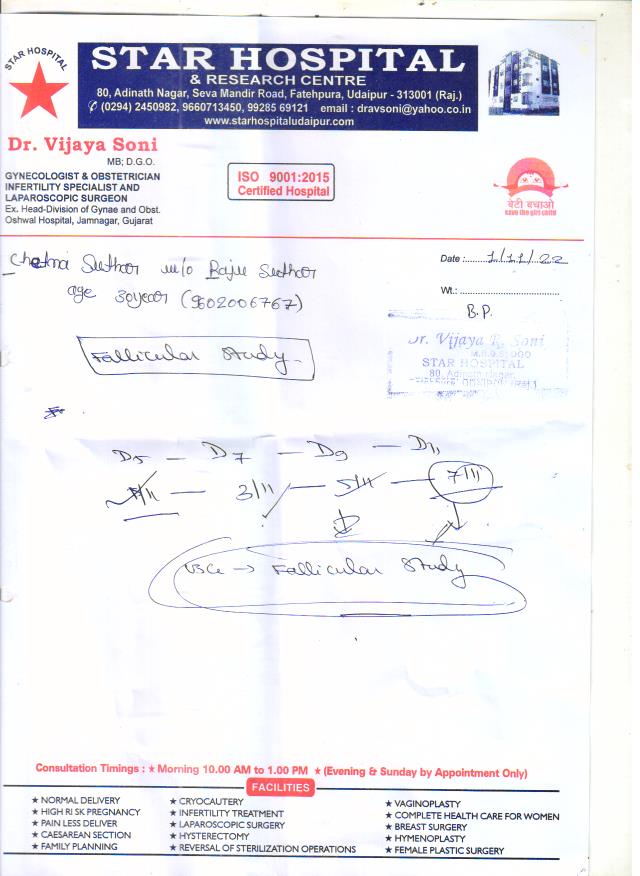 STAR HOSPITAL
STAR HOSPITAL
& RESEARCH CENTRE
80, Adinath Nagar, Seva Mandir Road, Fatehpura, Udaipur - 313001 (Raj.)
(0294) 2450982, 9660713450, 99285 69121 email : dravsoni@yahoo.co.in
www.starhospitaludaipur.com
Dr. Vijaya Soni
MB; D.G.O.
GYNECOLOGIST & OBSTETRICIAN
INFERTILITY SPECIALIST AND
LAPAROSCOPIC SURGEON
Ex. Head-Division of Gynae and Obst.
Oshwal Hospital, Jamnagar, Gujarat
ISO 9001:2015
Certified Hospital
बेटी बचाओ
save the girl child
Chetna Suthar w/o Raju Suthar
age 30year (9602006767)
Date : 1/11/22
Wt.:
B.P.
Dr. Vijaya R. Soni
STAR HOSPITAL
80, Adinath Nagar,
Fallicular Study
D5 — D7 — D9 — D11
1/11 — 3/11 — 5/11 — 7/11
Fallicular Study
Consultation Timings : ★ Morning 10.00 AM to 1.00 PM ★ (Evening & Sunday by Appointment Only)
FACILITIES
★ NORMAL DELIVERY
★ HIGH RI SK PREGNANCY
★ PAIN LESS DELIVER
★ CAESAREAN SECTION
★ FAMILY PLANNING
★ CRYOCAUTERY
★ INFERTILITY TREATMENT
★ LAPAROSCOPIC SURGERY
★ HYSTERECTOMY
★ REVERSAL OF STERILIZATION OPERATIONS
★ VAGINOPLASTY
★ COMPLETE HEALTH CARE FOR WOMEN
★ BREAST SURGERY
★ HYMENOPLASTY
★ FEMALE PLASTIC SURGERY